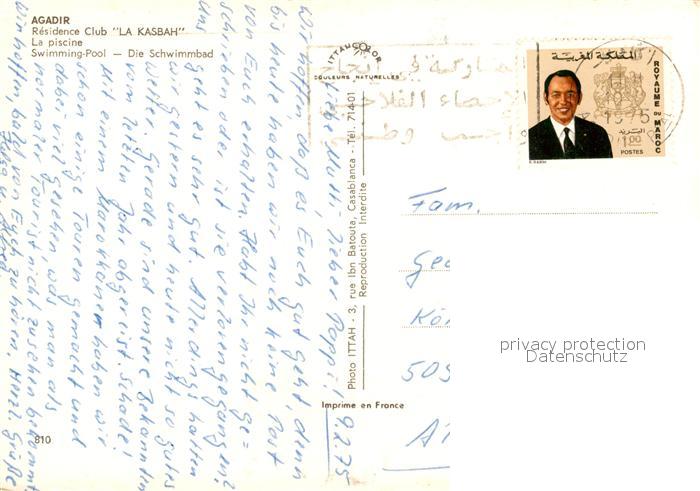 AGADIR
Résidence Club "LA KASBAH"
La piscine
Swimming-Pool — Die Schwimmbad
ITTAHCOLOR
COULEURS NATURELLES
المملكة المغربية
ROYAUME DU MAROC
البريد
1,00
POSTES
9.2.75
Liebe Mutti, lieber Pappi!
Wir hoffen, daß es Euch gut geht, denn
bis heute haben wir noch keine Post
von Euch erhalten. Habt Ihr nicht ge=
schrieben, ist sie verloren gegangen?
Uns geht es sehr gut. Allerdings hatten
wir gestern und heute nicht so gutes
Wetter. Gerade sind unsere Bekannten
vom letzten Jahr abgereist. Schade!
Mit einem Marokkaner haben wir
schon einige Touren gemacht und
dabei viel gesehen, was man als
normaler Tourist nicht zu sehen bekommt.
Wir hoffen, bald von Euch zu hören. Herzl. Grüße
Photo ITTAH - 3, rue Ibn Batouta, Casablanca - Tél. 714-01
Reproduction Interdite
Imprime en France
Fam.
Ge
Kö
505
A
privacy protection
Datenschutz
810